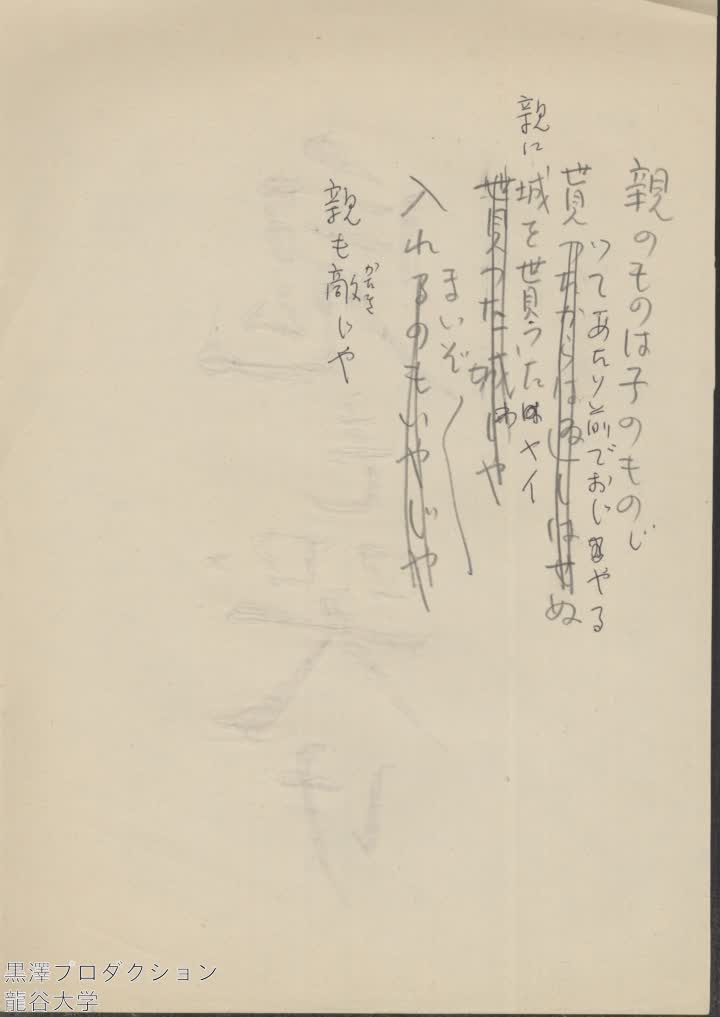 親のものは子のものじ
いてあたり前でおじやる
貰つたからは返しはせぬ
親に城を貰うたはヤイ
貰つた城じや
まいぞ
入れるのもいやじや
親も敵じや
かたき
黒澤プロダクション
龍谷大学